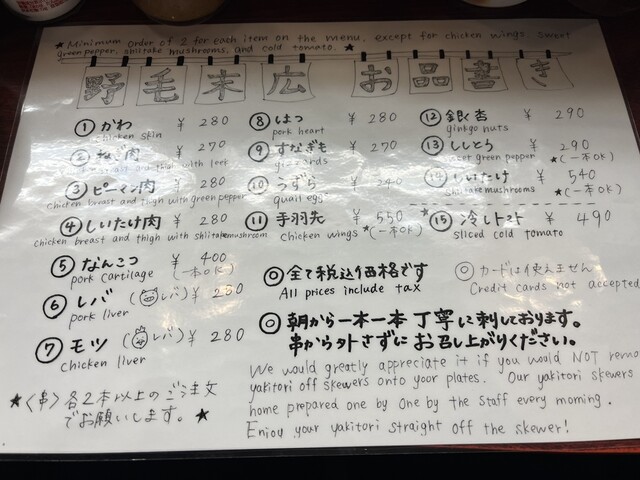 ★Minimum order of 2 for each item on the menu, except for chicken wings sweet
green pepper, shiitake mushrooms, and cold tomato. ★
野毛末広 お品書き
① かわ ¥ 280
chicken skin
② ねぎ肉 ¥ 270
with leek
③ ピーマン肉 ¥ 280
chicken breast and thigh with green pepper
④ しいたけ肉 ¥ 280
chicken breast and thigh with shiitake mushroom
⑤ なんこつ ¥ 400
pork cartilage (一本OK)
⑥ レバ (レバ) ¥ 280
pork liver
⑦ モツ (レバ) ¥ 280
chicken liver
★〈串〉各2本以上のご注文
でお願いします。★
⑧ はつ ¥ 280
pork heart
⑨ すなぎも ¥ 270
gizzards
⑩ うずら ¥ 240
quail eggs
⑪ 手羽先 ¥ 550
chicken wings ★(一本OK)
⑫ 銀杏 ¥ 290
ginkgo nuts
⑬ ししとう ¥ 290
sweet green pepper ★(一本OK)
⑭ しいたけ ¥ 540
shiitake mushrooms ★(一本OK)
★⑮ 冷しトマト ¥ 490
sliced cold tomato
◎ 全て税込価格です
All prices include tax
◎ カードは使えません
Credit cards not accepted
◎ 朝から一本一本 丁寧に刺しております。
串から外さずに お召し上がりください。
We would greatly appreciate it if you would NOT remo
yakitori off skewers onto your plates. Our yakitori skewers
home prepared one by one by the staff every morning.
Enjoy your yakitori straight off the skewer!